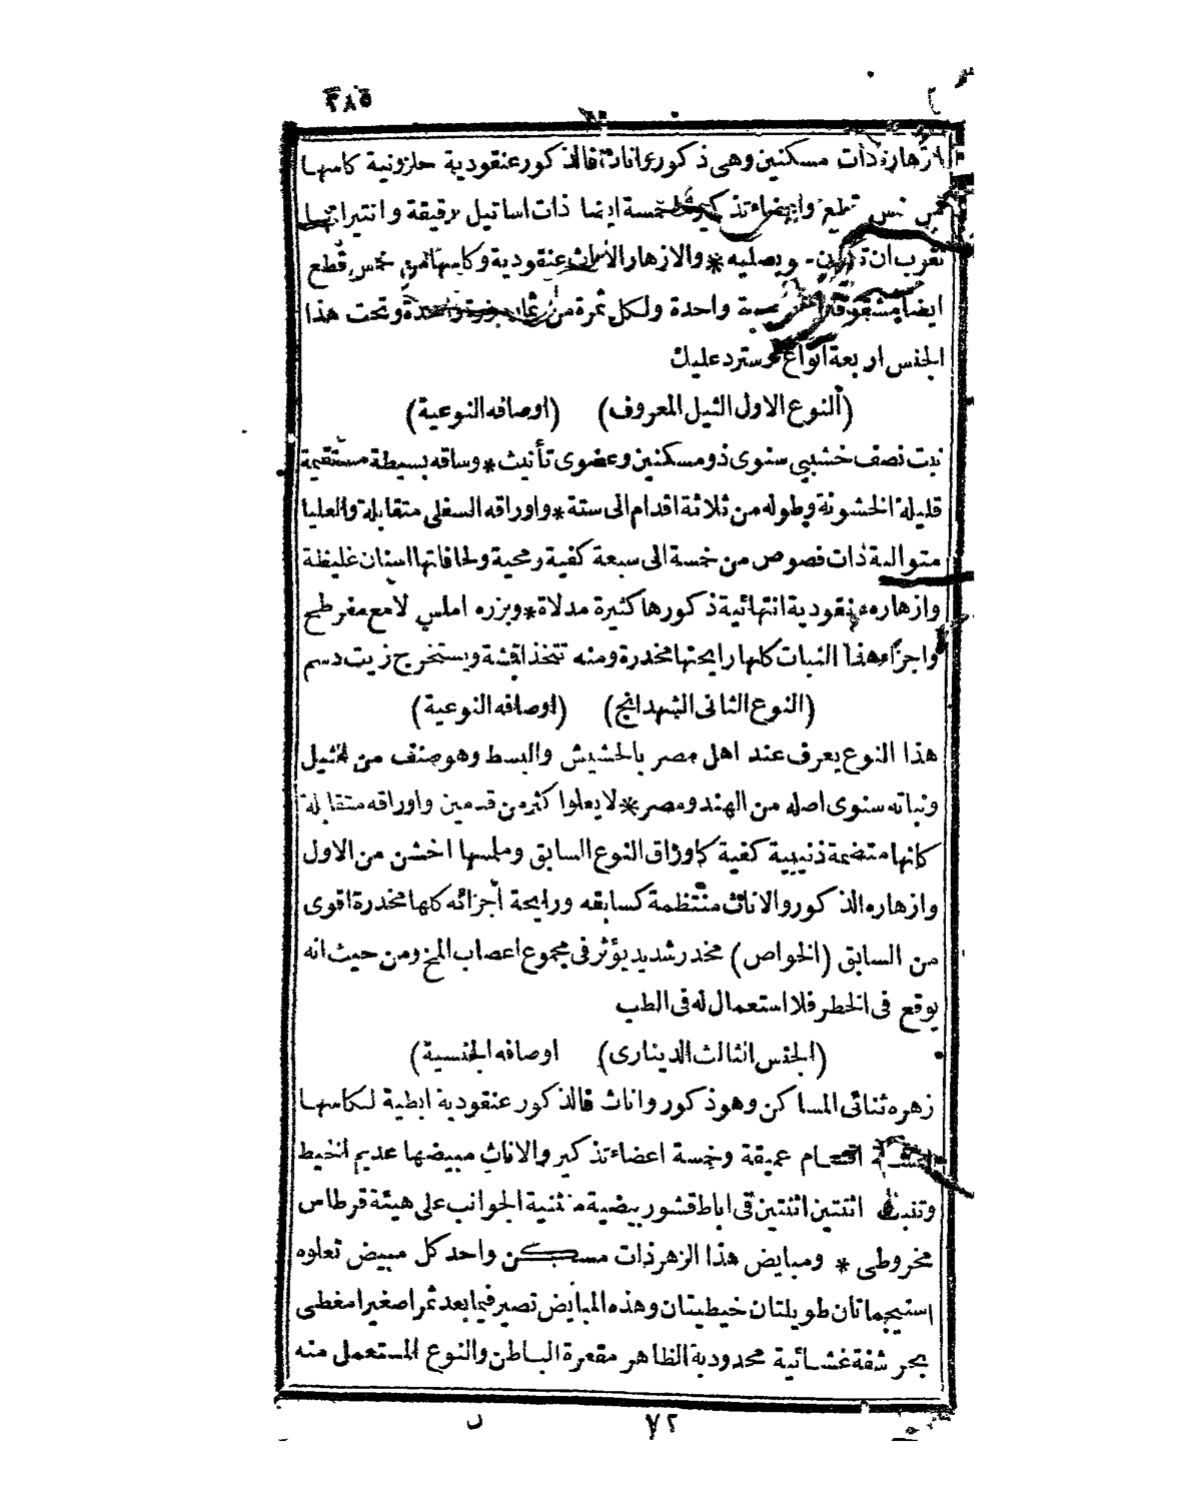 ٣٨٥
ازهاره ذات مسكنين وهى ذكور واناث فالذكور عنقودية حلزونية كاسها
خمس قطع واعضاء تذكيره خمسة ايضا ذات اساتيل رقيقة وانتيراتها
تقرب ان بصليه * والازهار الاناث عنقودية وكاسها من خمس قطع
ايضا مشقوقة واحدة ولكل ثمرة من واحدة وتحت هذا
الجنس اربعة انواع سترد عليك
(النوع الاول التيل المعروف) (اوصافه النوعية)
نبت نصف خشبى سنوى ذو مسكنين وعضوى تأنيث * وساقه بسيطة مستقيمة
قليلة الخشونة وطوله من ثلاثة اقدام الى ستة * واوراقه السفلى متقابلة والعليا
متوالية ذات فصوص من خمسة الى سبعة كفية رمحية ولحافاتها اسنان غليظة
وازهاره عنقودية انتهائية ذكورها كثيرة مدلاة * وبزره املس لامع مفرطح
واجزاء هذا النبات كلها رايحتها مخدرة ومنه تتخذ اقمشة ويستخرج زيت دسم
(النوع الثانى الشهدانج) (اوصافه النوعية)
هذا النوع يعرف عند اهل مصر بالحشيش والبسط وهو صنف من التيل
ونباته سنوى اصله من الهند ومصر * لا يعلوا كثر من قدمين واوراقه متقابلة
كانها منضمة ذنيبية كفية كاوراق النوع السابق وملمسها اخشن من الاول
وازهاره الذكور والاناث منتظمة كسابقه ورايحة أجزائه كلها مخدرة اقوى
من السابق (الخواص) مخدر شديد يؤثر فى مجموع اعصاب المخ ومن حيث انه
يوقع فى الخطر فلا استعمال له فى الطب
(الجنس الثالث الدينارى) اوصافه الجنسية)
زهره ثنائى المساكن وهو ذكور واناث فالذكور عنقودية ابطية لكاسها
اقسام عميقة وخمسة اعضاء تذكير والاناث مبيضها عديم الخيط
وتنبت اثنتين اثنتين فى اباط قشور بيضية منثنية الجوانب على هيئة قرطاس
مخروطى * ومبايض هذا الزهر ذات مسكن واحد كل مبيض تعلوه
استيجماتان طويلتان خيطيتان وهذه المبايض تصير فيما بعد ثمرا صغيرا مغطى
بحرشفة غشائية محدودبة الظاهر مقعرة الباطن والنوع المستعمل منه
٧٢ ن